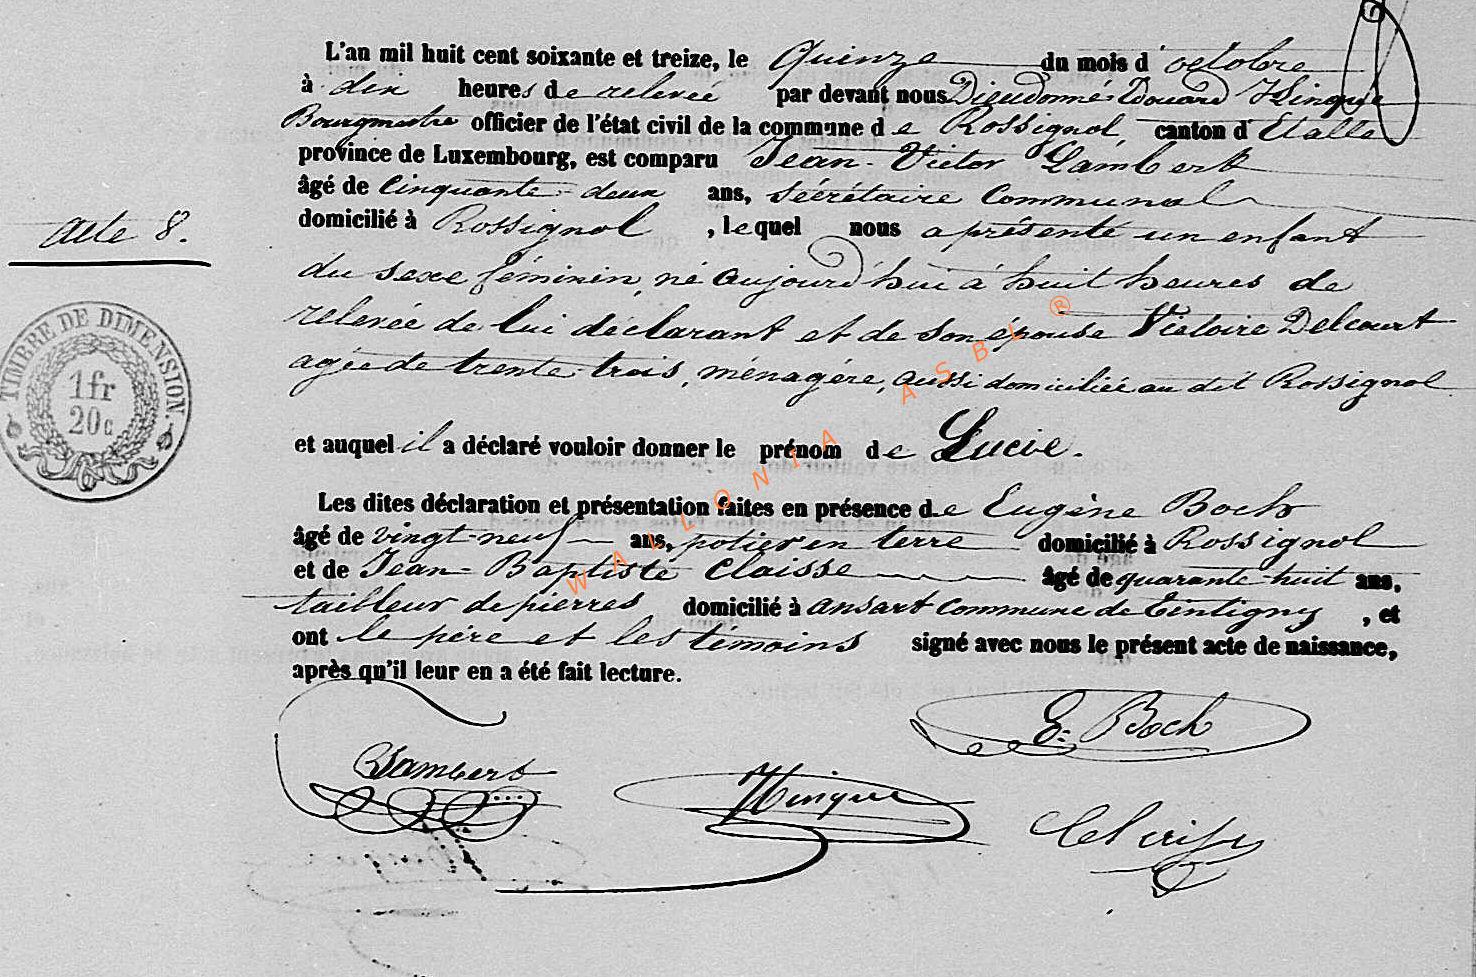 L'an mil huit cent soixante et treize, le Quinze du mois d'octobre
à dix heures de relevée par devant nous Dieudonné Edouard Hinque
Bourgmestre officier de l'état civil de la commune de Rossignol, canton d'Etalle
province de Luxembourg, est comparu Jean-Victor Lambert
âgé de cinquante-deux ans, sécrétaire communal
domicilié à Rossignol, lequel nous a présenté un enfant
Acte 8.
du sexe féminin, né aujourd'hui à huit heures de
relevée de lui déclarant et de son épouse Victoire Delcourt
agée de trente-trois, ménagère, aussi domiciliée au dit Rossignol
et auquel il a déclaré vouloir donner le prénom de Lucie.
TIMBRE DE DIMENSION.
1fr
20c
Les dites déclaration et présentation faites en présence de Eugène Boch
âgé de vingt-neuf ans, potier en terre domicilié à Rossignol
et de Jean-Baptiste Claisse âgé de quarante-huit ans,
tailleur de pierres domicilié à Ansart commune de Tintigny, et
ont le père et les témoins signé avec nous le présent acte de naissance,
après qu'il leur en a été fait lecture.
E. Boch
Lambert
Hinque
WALLONIA ASBL ®